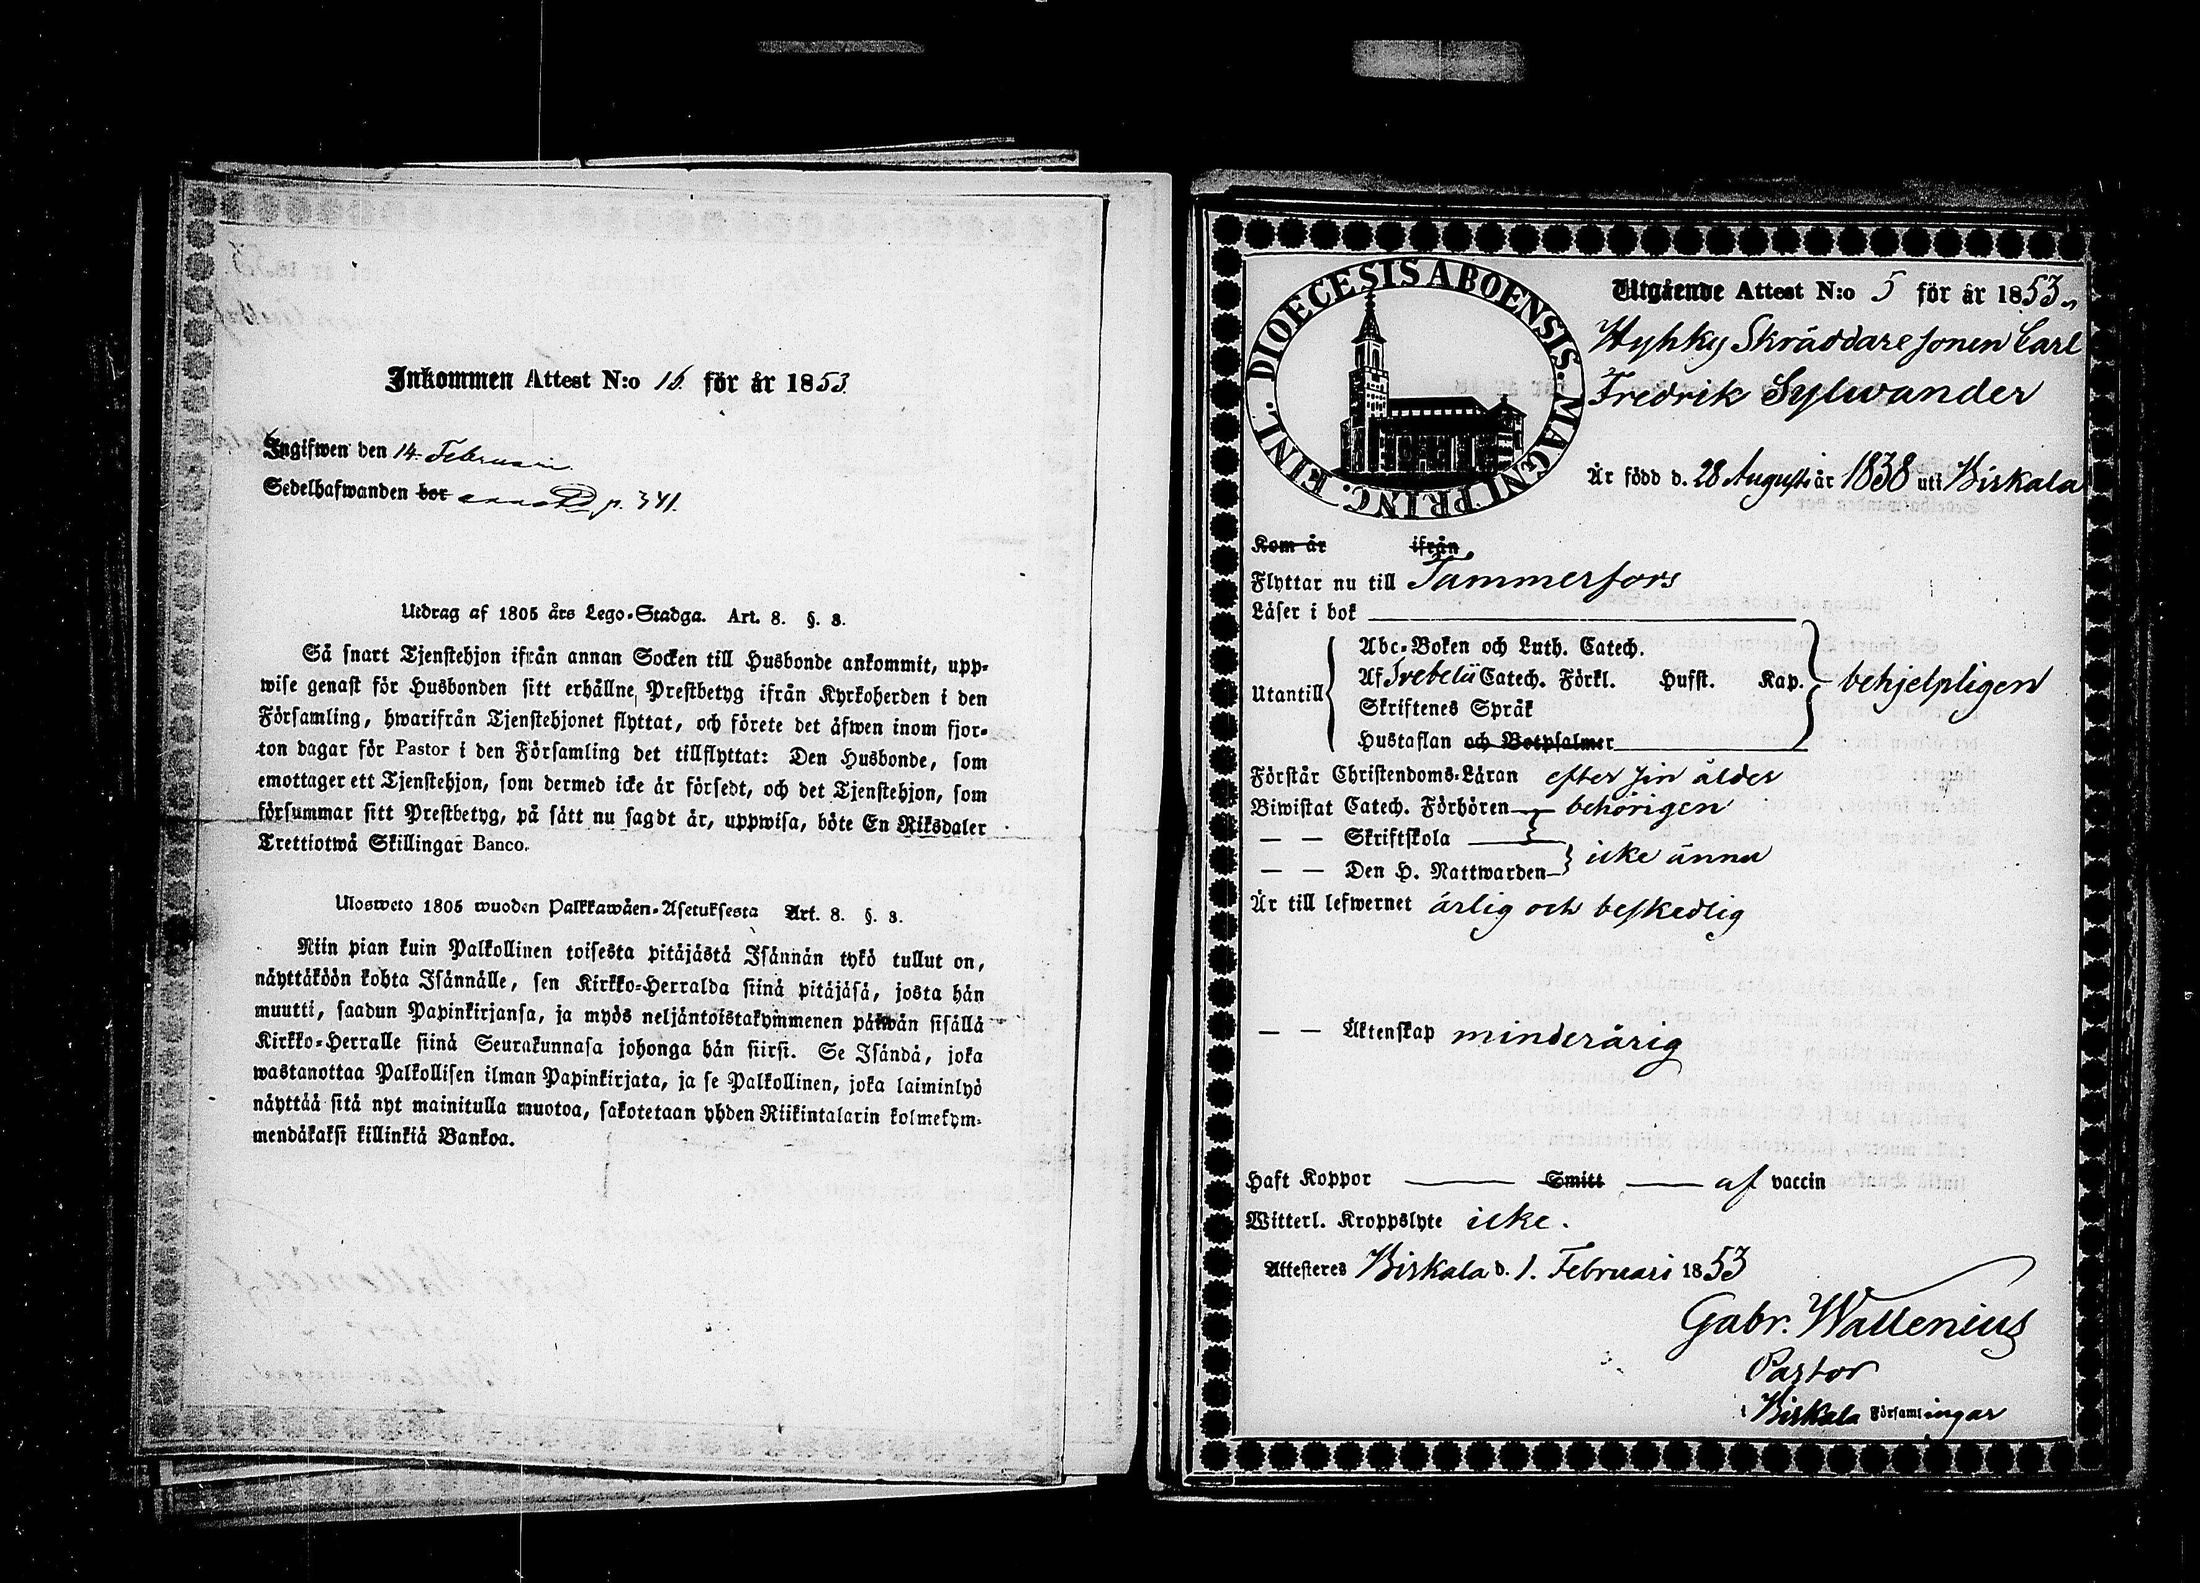 Inkommen Attest N:o 15. för år 1853.
Ingifwen den 14. Februari
Sedelhafwanden bor p. 341.
Utdrag af 1805 års Lego-Stadga. Art. 8. §. 3.
Så snart Tjenstehjon ifrån annan Socken till Husbonde ankommit, upp-
wise genast för Husbonden sitt erhållne Prestbetyg ifrån Kyrkoherden i den
Församling, hwarifrån Tjenstehjonet flyttat, och förete det äfwen inom fjor-
ton dagar för Pastor i den Församling det tillflyttat: Den Husbonde, som
emottager ett Tjenstehjon, som dermed icke är försedt, och det Tjenstehjon, som
försummar sitt Prestbetyg, på sätt nu sagdt är, uppwisa, böte En Riksdaler
Trettiotwå Skillingar Banco.
Ulosweto 1805 wuoden Palkkawäen-Asetuksesta Art. 8. §. 3.
Niin pian kuin Palkollinen toisesta pitäjästä Isännän tykö tullut on,
näyttäköön kohta Isännälle, sen Kirkko-Herralda siinä pitäjäsä, josta hän
muutti, saadun Papinkirjansa, ja myös neljäntoistakymmenen päiwän sisällä
Kirkko-Herralle siinä Seurakunnasa johonga hän siirsi. Se Isändä, joka
wastanottaa Palkollisen ilman Papinkirjata, ja se Palkollinen, joka laiminlyö
näyttää sitä nyt mainitulla muotoa, sakotetaan yhden Riikintalarin kolmekym-
mendäkaksi killinkiä Bankoa.
DIOECESIS ABOENSIS. MAGNI PRINC. FINL.
Utgående Attest N:o 5 för år 1853.
Hyhky Skräddaresonen Carl
Fredrik Sylwander
Är född d. 28 Augusti år 1838 uti Birkala
Kom år ifrån
Flyttar nu till Tammerfors
Läser i bok
Abc-Boken och Luth. Catech.
Utantill Af Svebelii Catech. Förkl. Hufst. Kap. behjelpligen
Skriftenes Språk
Hustaflan och Botpsalmer
Förstår Christendoms-Läran efter sin ålder
Biwistat Catech. Förhören behörigen
— — Skriftskola
— — Den H. Nattwarden icke ännu
Är till lefwernet ärlig och beskedlig
— — Äktenskap minderårig
Haft Koppor — Smitt — af vaccin
Witterl. Kroppslyte icke.
Attesteres Birkala d. 1. Februari 1853
Gabr. Wallenius
Pastor
i Birkala Församlingar